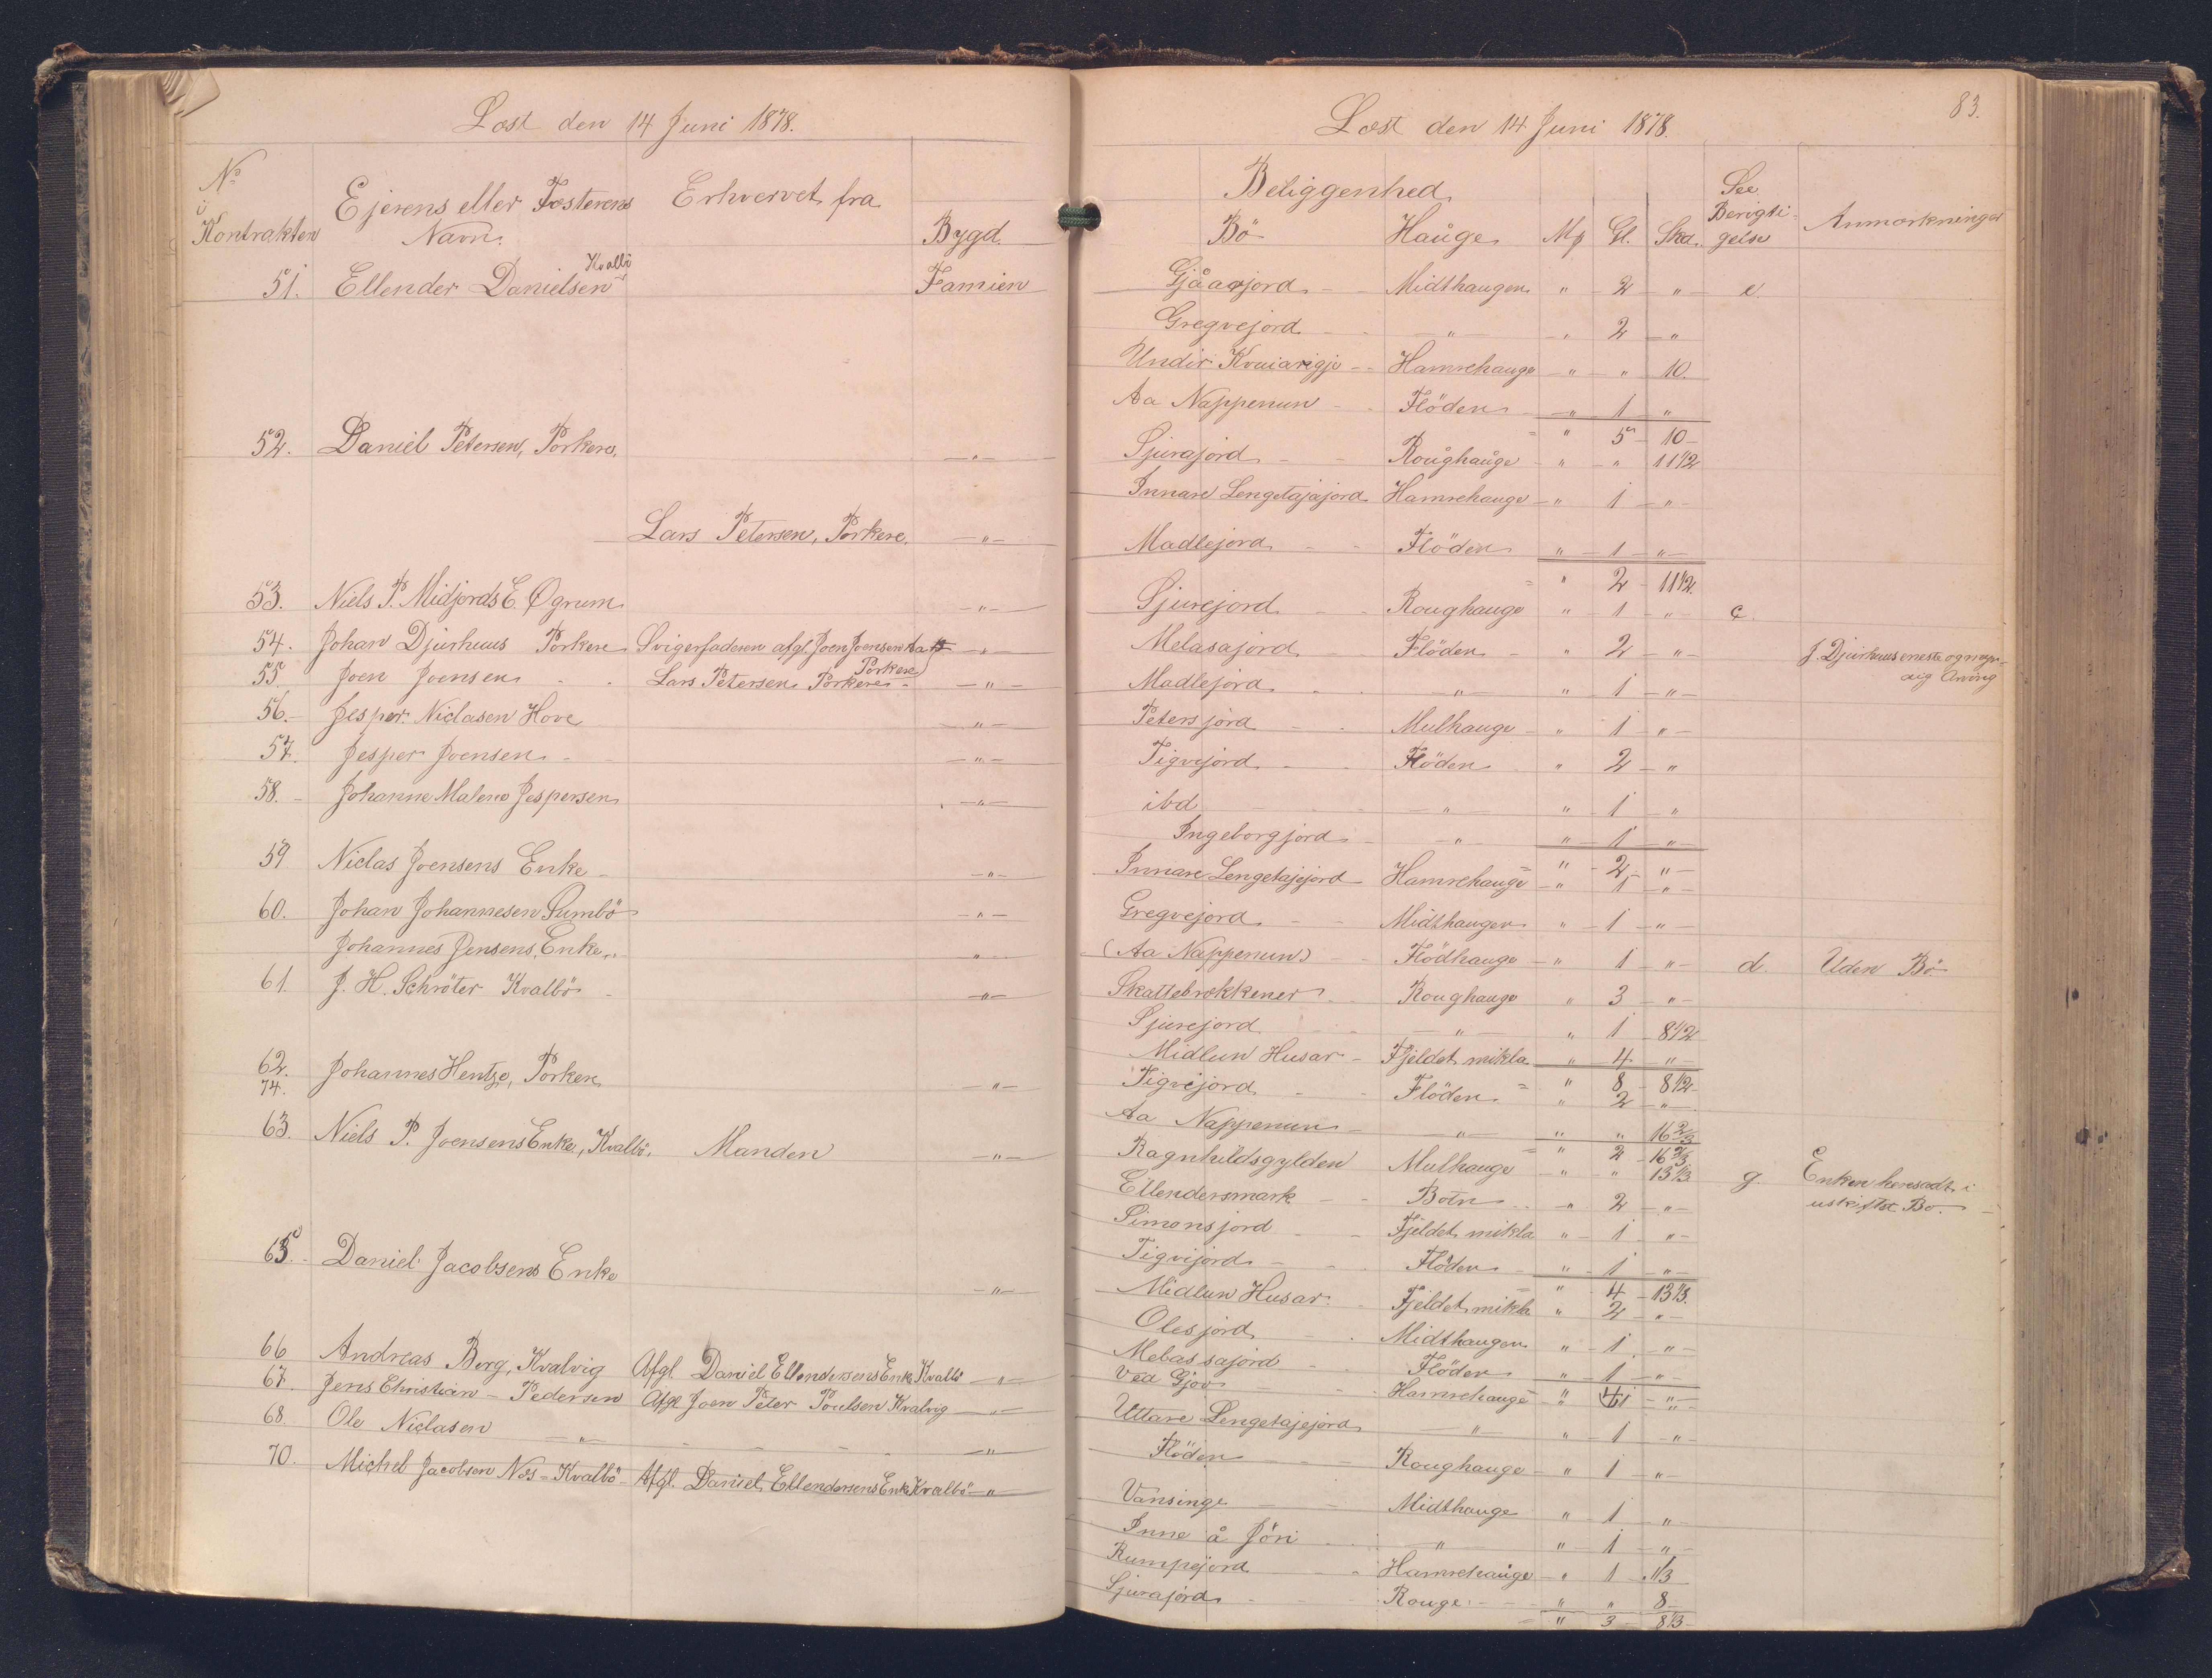 Læst den 14 Juni 1878.
No i Kontrakten | Ejerens eller Fæsterens Navn. | Erhvervet fra | Bygd.
51. Ellender Danielsen Kvalbö | Famien
52. Daniel Petersen, Porkere. | — " —
Lars Petersen, Porkere. | — " —
53. Niels P. Midjords E. Øgrum | — " —
54. Johan Djurhuus Porkere | Svigerfaderen afgl. Joen Joensen | — " —
Porkere
55 Joen Joensen | Lars Petersen Porkere | — " —
56. Jesper Niclasen Hove | — " —
57. Jesper Joensen | — " —
58. Johanne Malene Jespersen | — " —
59 Niclas Joensens Enke | — " —
60. Johan Johannesen Sumbö | — " —
Johannes Jensens Enke | — " —
61. J. H. Schröter Kvalbö | — " —
62. 74. Johannes Hentze, Porkere | — " —
63. Niels P. Joensens Enke, Kvalbö. | Manden | — " —
65. Daniel Jacobsens Enke | — " —
66 Andreas Berg, Kvalvig | Afgl. Daniel Ellendersens Enke Kvalbö | — " —
67. Jens Christian Pedersen | Afgl Joen Peter Poulsen Kvalvig | — " —
68. Ole Niclasen — " — | — " —
70. Michel Jacobsen Næs-Kvalbö | Afgl. Daniel Ellendersens Enke Kvalbö | "
83.
Læst den 14 Juni 1878.
Beliggenhed
Bö | Hauge | Mk | Gl. | Skd. | See Berigtigelse | Anmærkninger
Gjåarjord | Midthaugen | " | 2 | " | e
Gregvejord | " | " | 2 | "
Undir Kvuiarigje | Hamrehauge | " | " | 10.
Aa Nappenun | Flöden | " | 1 | "
= " 5 10
Sjurajord | Roughauge | " | " | 11 1/2
Innare Lengetajajord | Hamrehauge | " | 1 | "
Madlejord | Flöden | " | 1 | "
= " 2 11 1/2
Sjurejord | Roughauge | " | 1 | " | c.
Melasajord | Flöden | " | 2 | " | J. Djurhuus eneste og myndig Arving
Madlejord | " | " | 1 | "
Petersjord | Mulhauge | " | 1 | "
Tigvejord | Flöden | " | 2 | "
ibd | " | " | 1 | "
Ingeborgjord | " | " | 1 | "
= " 2 "
Innare Lengetajejord | Hamrehauge | " | 1 | "
Gregvejord | Midthaugen | " | 1 | "
(Aa Nappenun) | Flödhauge | " | 1 | " | d. | Uden Bö
Skattebrekkener | Roughauge | " | 3 | "
Sjurejord | " | " | 1 | 8 1/2
Midlun Husar | Fjeldet mikla | " | 4 | "
= " 8 8 1/2
Tigvejord | Flöden | " | 2 | "
Aa Nappenun | " | " | " | 16 2/3
= " 2 16 2/3
Ragnhildsgylden | Mulhauge | " | " | 13 1/3 | g. | Enken hensadt i uskiftet Bo.
Ellendersmark | Botn | " | 2 | "
Simonsjord | Fjeldet mikla | " | 1 | "
Tigvijord | Flöden | " | 1 | "
= " 4 13 1/3.
Midlun Husar | Fjeldet mikla | " | 2 | "
Olesjord | Midthaugen | " | 1 | "
Mebassajord | Flöden | " | 1 | "
= " 4 "
Ved Gjov | Hamrehauge | " | 1 | "
Uttare Lengetajejord | " | " | 1 | "
Flöden | Roughauge | " | 1 | "
Vansinge | Midthauge | " | 1 | "
Inne å Jöri | " | " | 1 | "
Rumpejord | Hamrehauge | " | 1 | 1/3
Sjurajord | Rouge | " | " | 8
= " 3 8 1/3